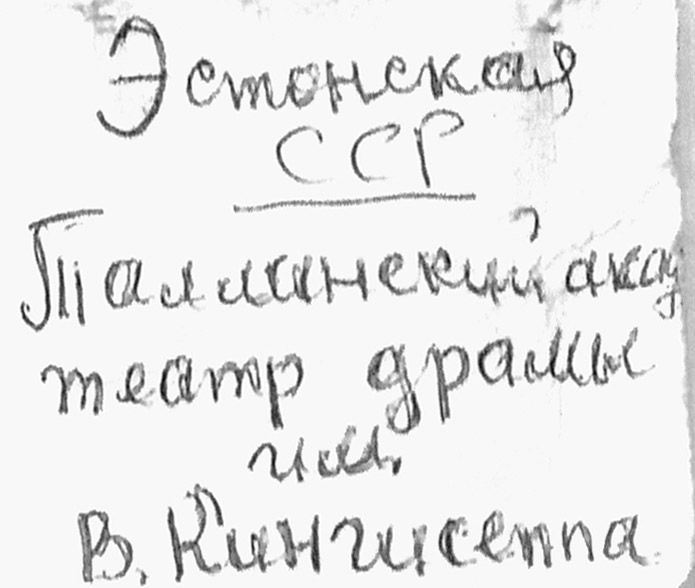 Эстонская
ССР
Таллинский акад
театр драмы
им.
В. Кингисеппа